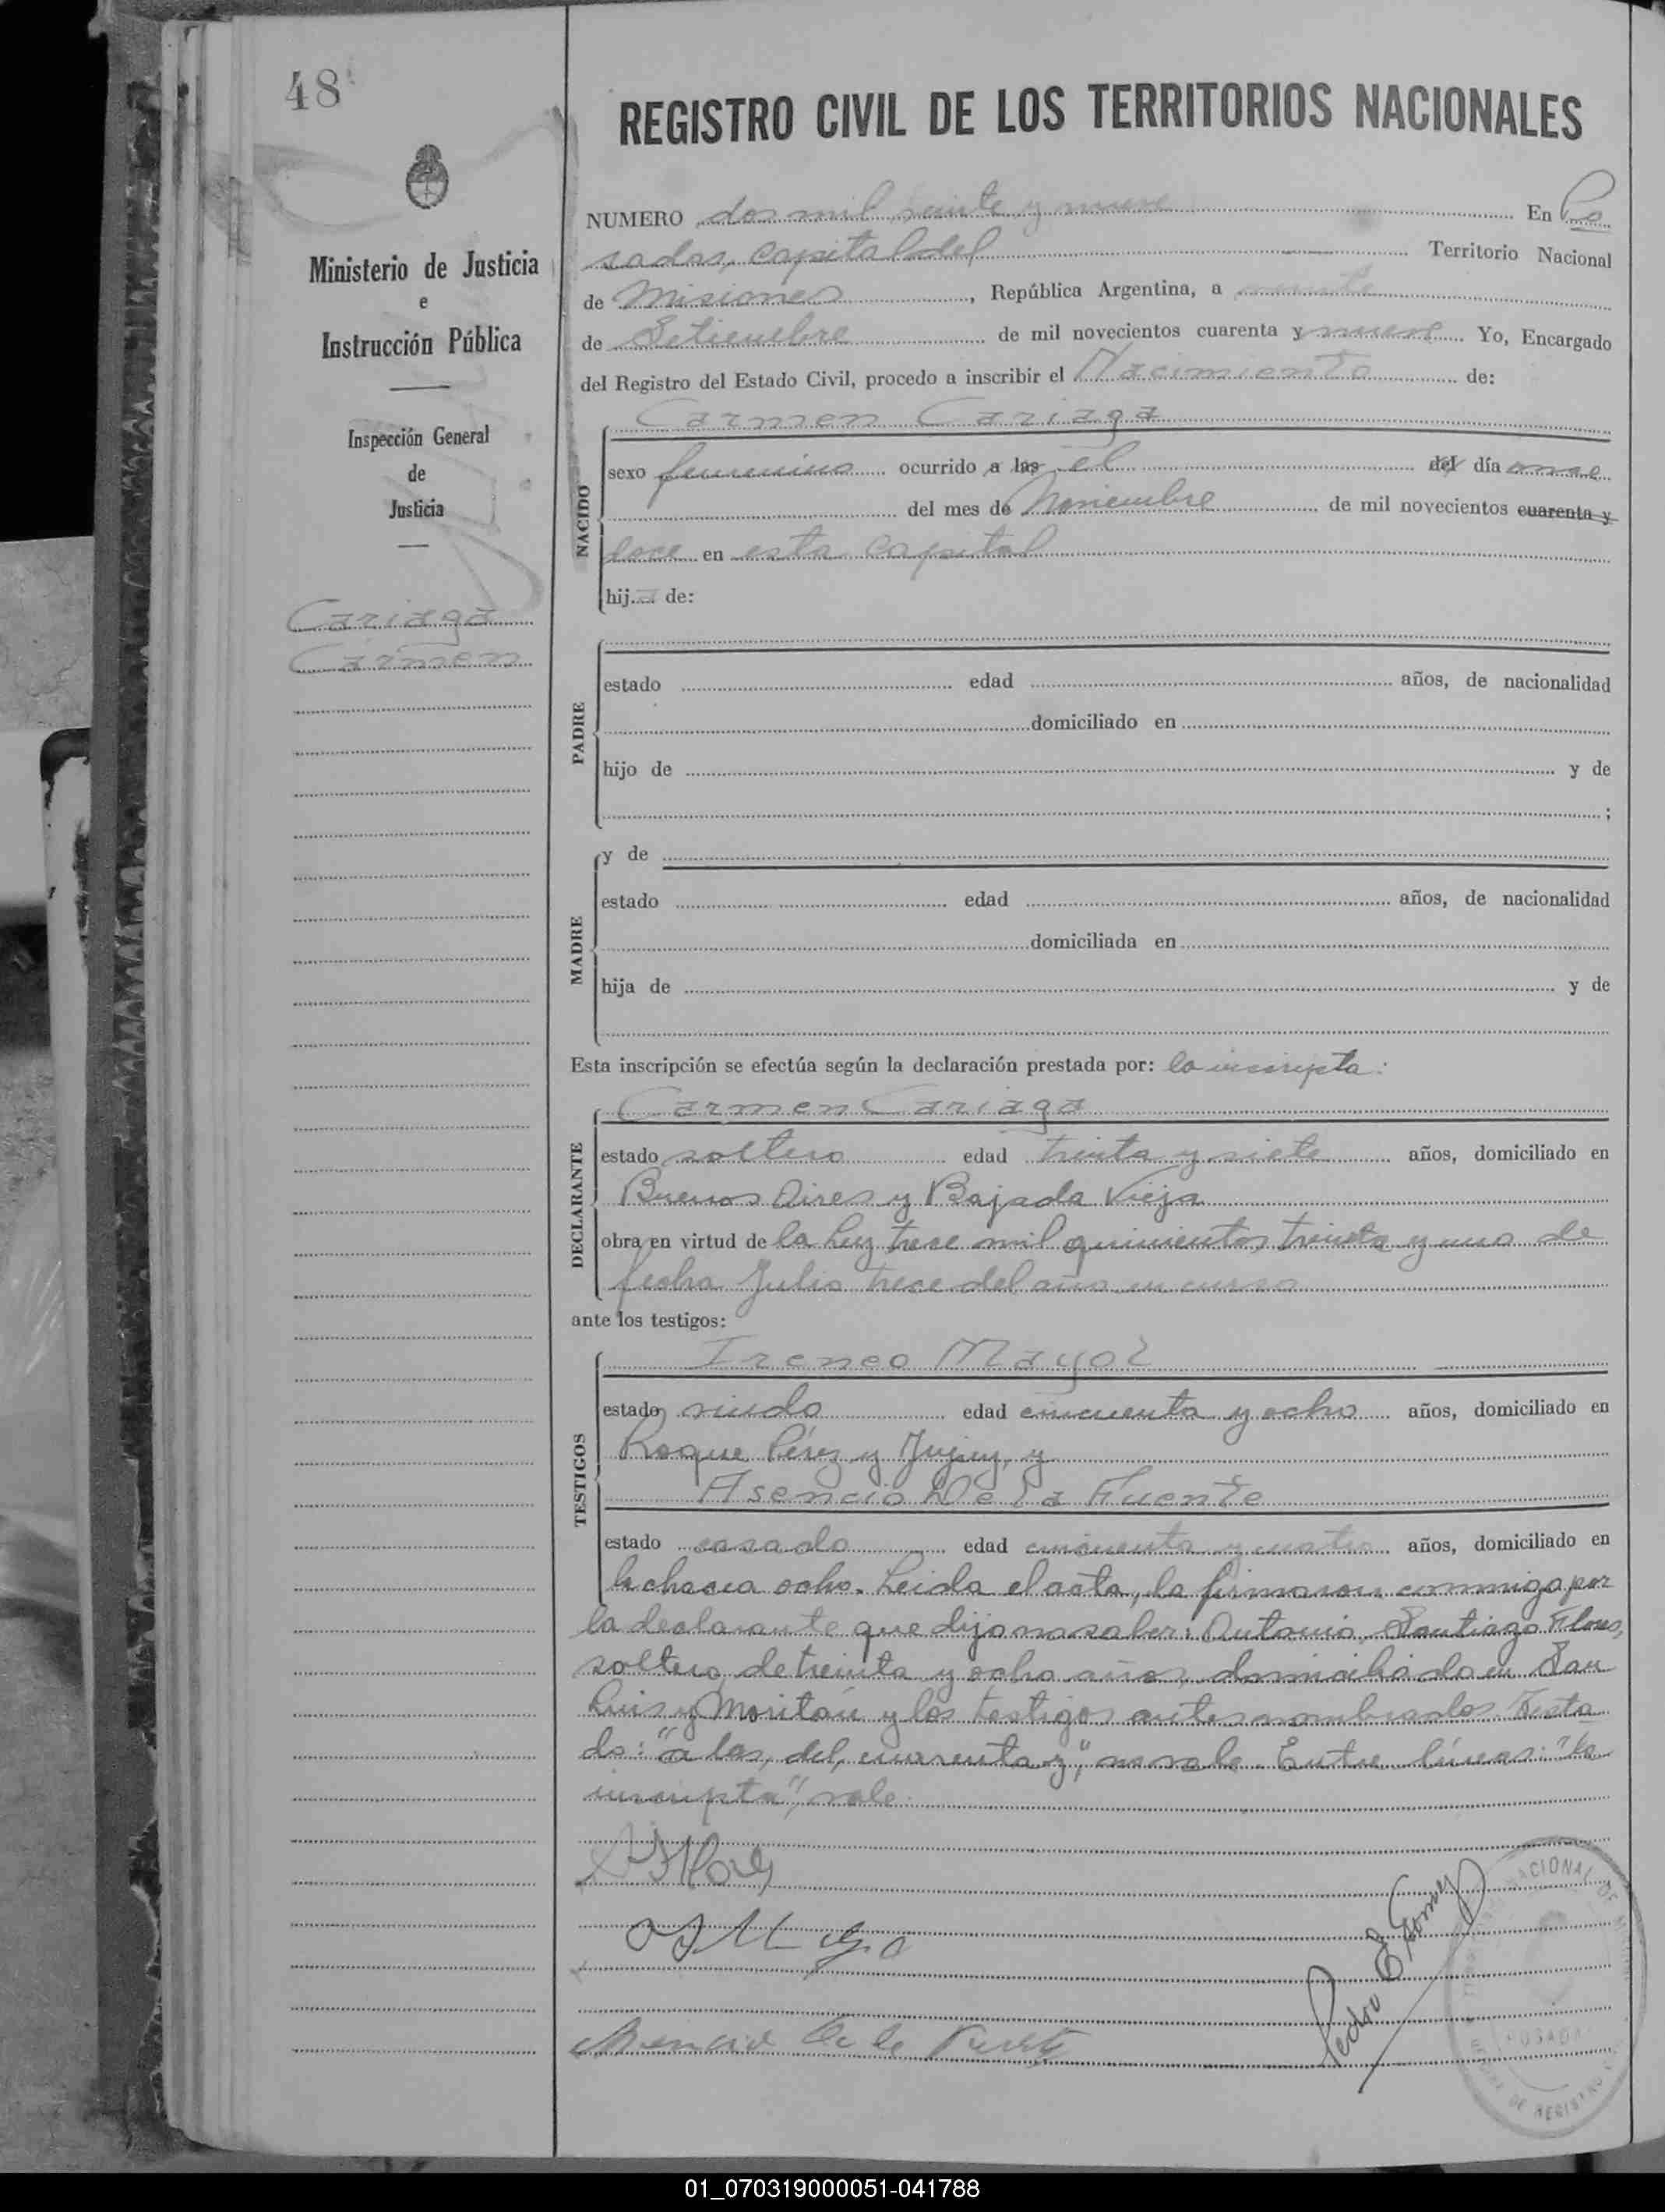 48
Ministerio de Justicia
e
Instrucción Pública
Inspección General
de
Justicia
Cariaga
Carmen
REGISTRO CIVIL DE LOS TERRITORIOS NACIONALES
NUMERO dos mil veinte y nueve En Po
sadas, capital del Territorio Nacional
de Misiones, República Argentina, a veinte
de Setiembre de mil novecientos cuarenta y nueve Yo, Encargado
del Registro del Estado Civil, procedo a inscribir el Nacimiento de:
NACIDO
Carmen Cariaga
sexo femenino ocurrido a las el del día once
del mes de Noviembre de mil novecientos cuarenta y
doce en esta capital
hija de:
PADRE
estado edad años, de nacionalidad
domiciliado en
hijo de y de
;
MADRE
y de
estado edad años, de nacionalidad
domiciliada en
hija de y de
Esta inscripción se efectúa según la declaración prestada por: la inscripta:
DECLARANTE
Carmen Cariaga
estado soltera edad treinta y siete años, domiciliado en
Buenos Aires y Bajada Vieja
obra en virtud de la Ley trece mil quinientos treinta y uno de
fecha Julio trece del año en curso
ante los testigos:
TESTIGOS
Ireneo Mayol
estado viudo edad cincuenta y ocho años, domiciliado en
Roque Pérez y Jujuy, y
Asencio De la Fuente
estado casado edad cincuenta y cuatro años, domiciliado en
la chacra ocho. Leida el acta, la firmaron conmigo por
la declarante que dijo no saber: Antonio Santiago Flores,
soltero, de treinta y ocho años, domiciliado en San
Luis y Moritán y los testigos antes nombrados. Testa
do: "a las, del, cuarenta y", no vale. Entre líneas: "la
inscripta", vale.
Flores
Asencio De la Fuente
Pedro E Gomez
NACIONAL DE
POSADAS
DE REGISTRO
01_070319000051-041788